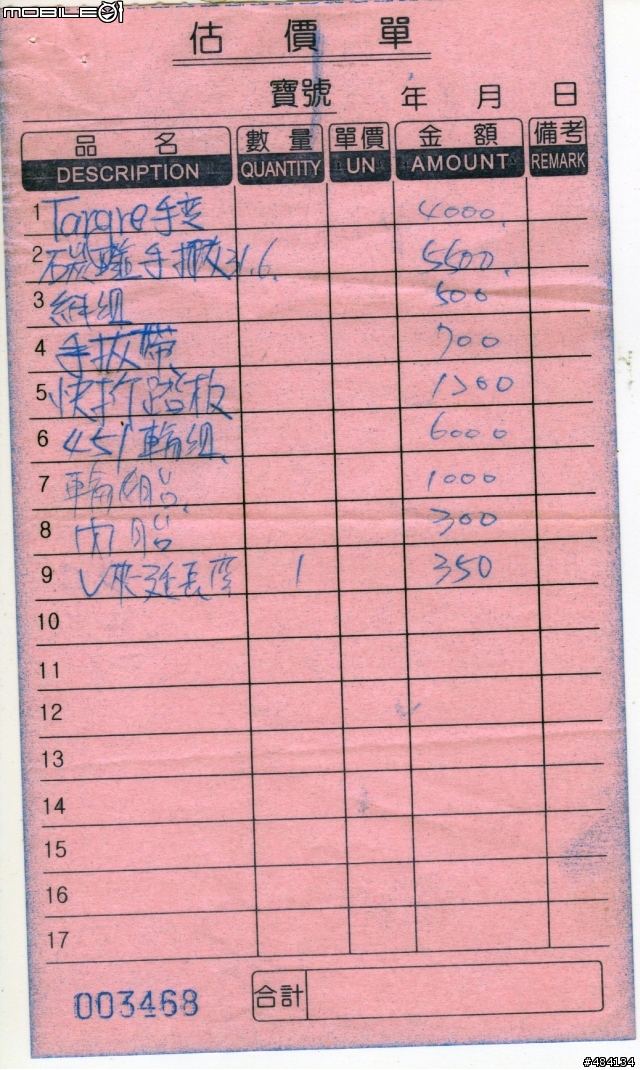 MOBILE01
估價單
寶號 年 月 日
品名 數量 單價 金額 備考
DESCRIPTION QUANTITY UN AMOUNT REMARK
1 手变 4000
2 碳 手 31.6. 5500
3 組 500
4 手 帶 700
5 快拆踏板 1300
6 451輪組 6000
7 輪 胎 1000
8 內胎 300
9 V夾延長 1 350
10
11
12
13
14
15
16
17
003468 合計
#484134